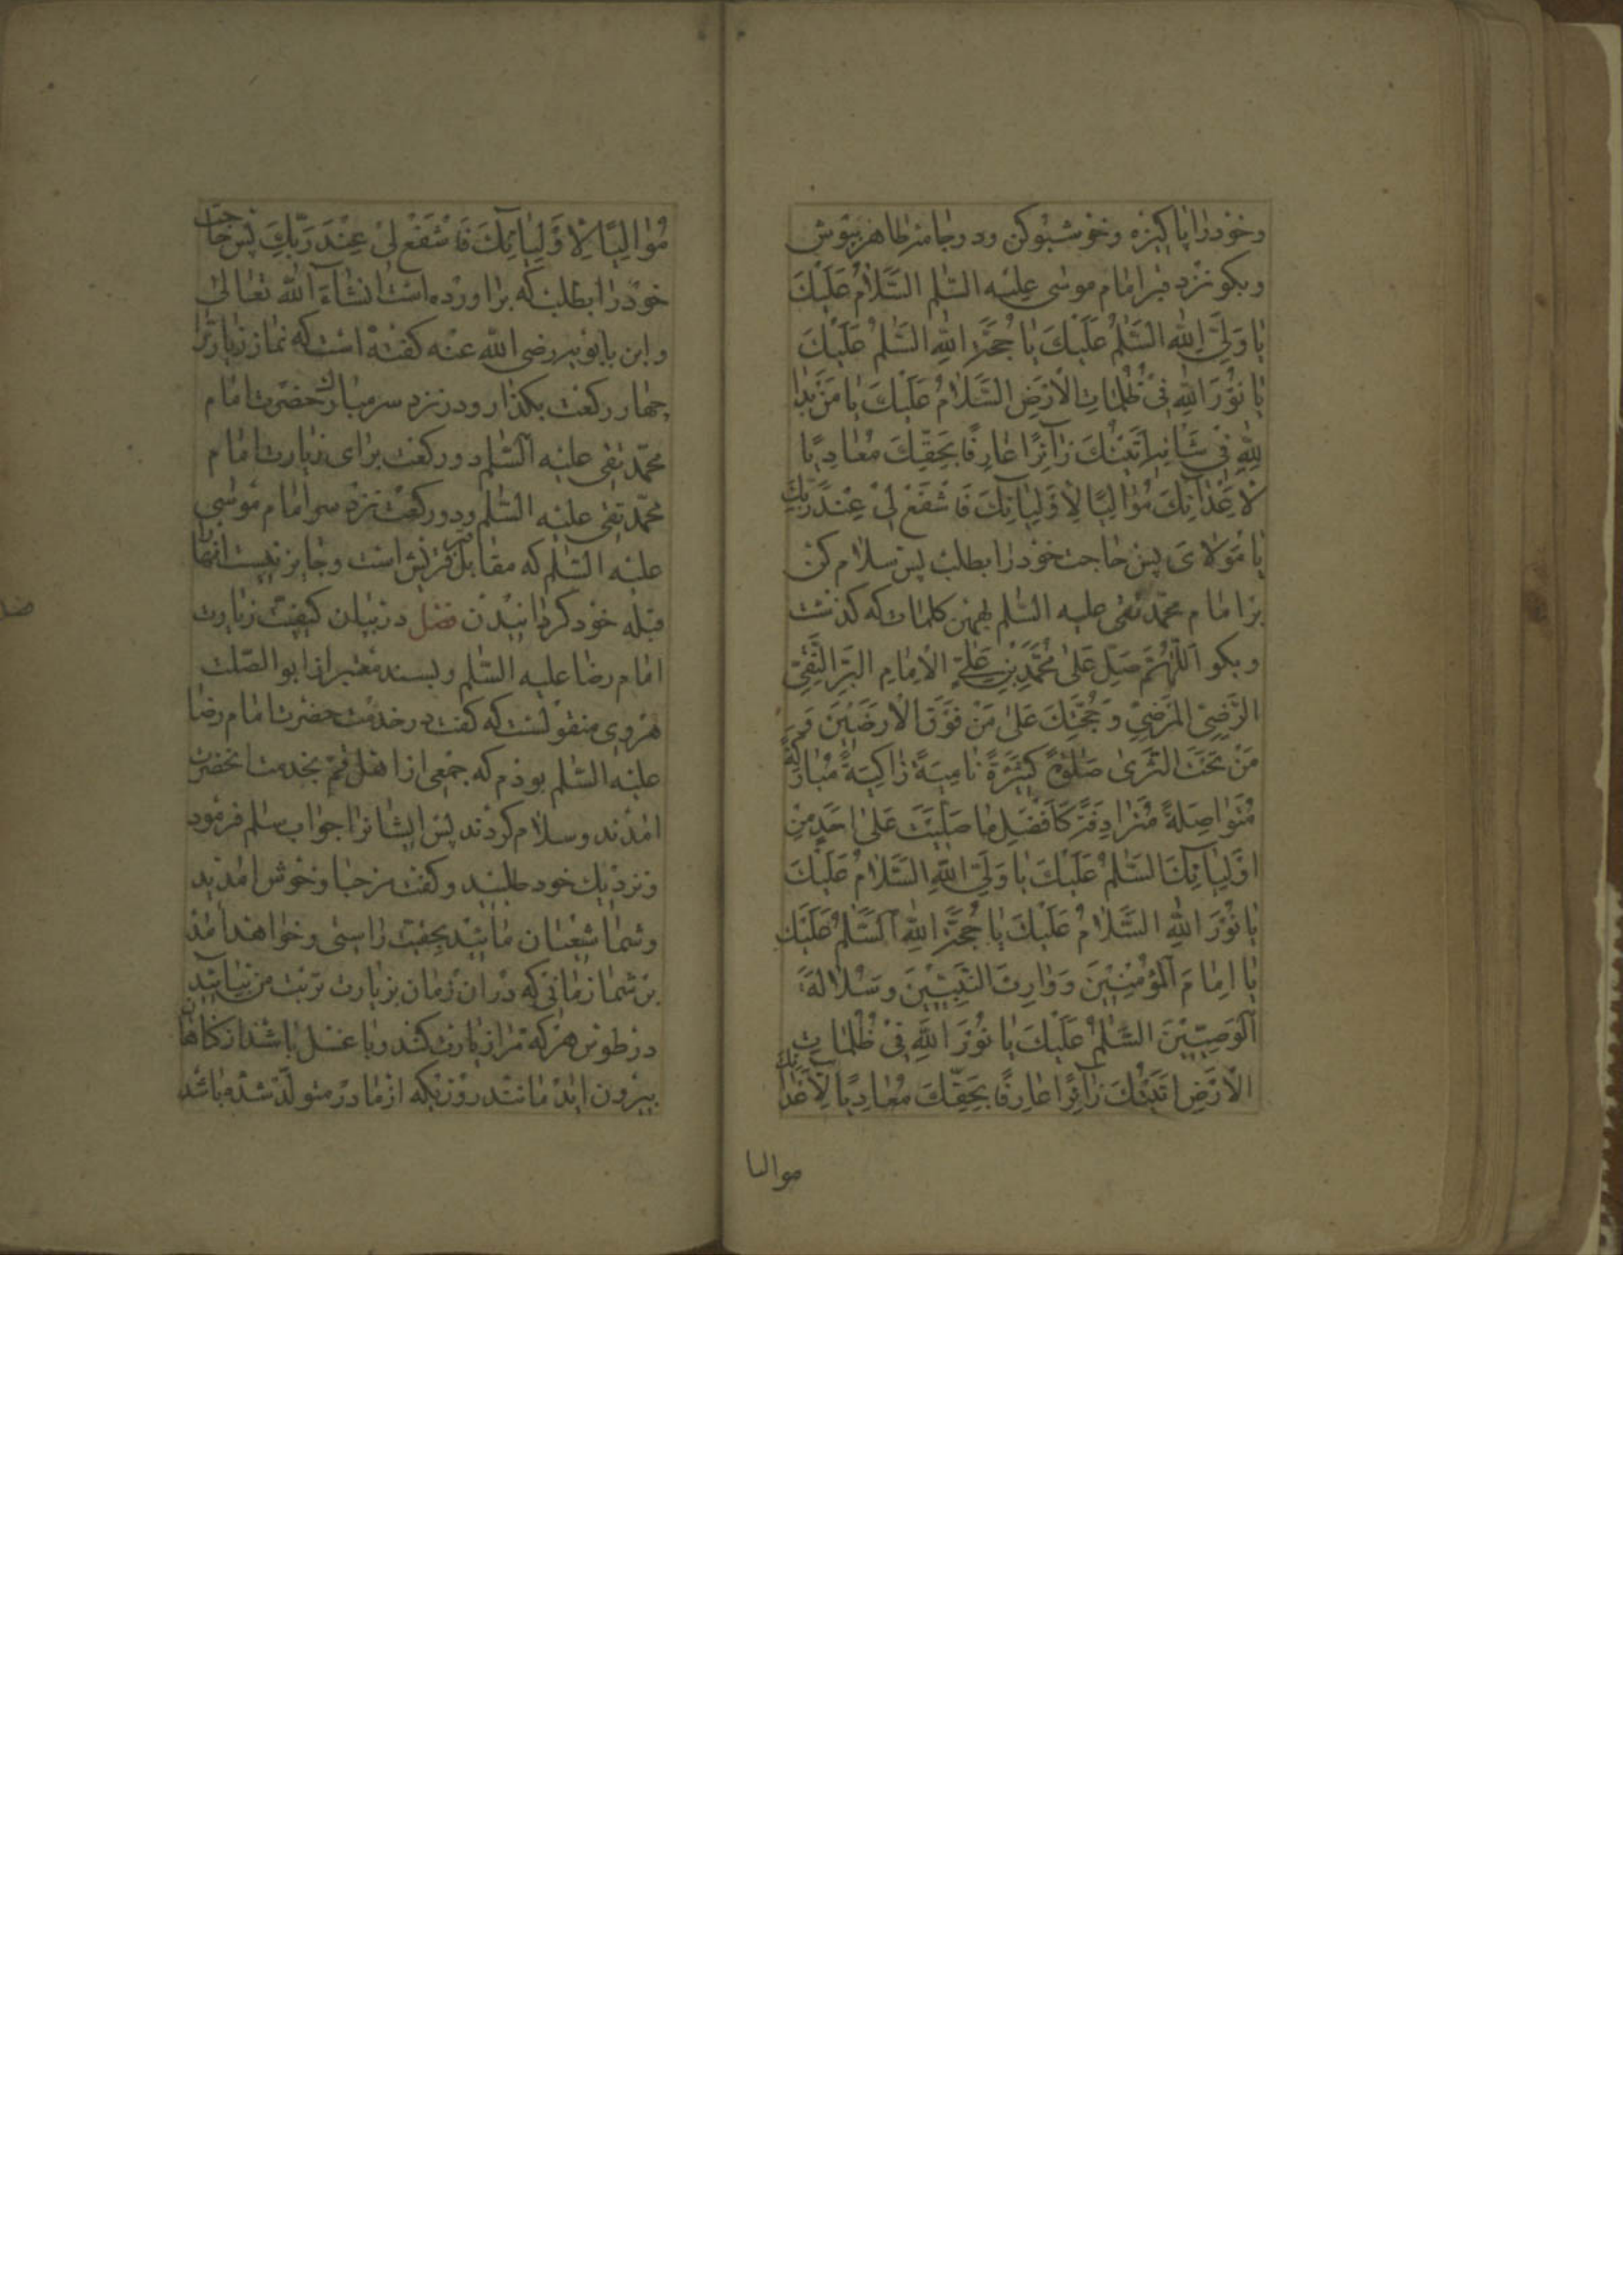 وخود را پاکیزه وخوشبو کن ودو جامهٔ طاهر بپوش
وبکو نزد قبر امام موسی علیه السّلم السَّلامُ عَلَیْكَ
یا وَلِیَّ اللهِ السَّلٰمُ عَلَیْكَ یا حُجَّةَ اللهِ السَّلٰمُ عَلَیْكَ
یا نُوْرَ اللهِ فِیْ ظُلُماتِ الْاَرْضِ السَّلامُ عَلَیْكَ یا مَنْ بَدا
لِلّٰهِ فِیْ شَانِهِ اَتَیْتُكَ زآئِرًا عارِفًا بِحَقِّكَ مُعادِیًا
لِاَعْدآئِكَ مُوالِیًا لِاَوْلِیائِكَ فَاشْفَعْ لِیْ عِنْدَ رَبِّكَ
یا مَوْلایَ پس حاجت خود را بطلب پس سلام کن
بر امام محمّد تقی علیه السّلم بهمین کلمات که کذشت
وبکو اَللّٰهُمَّ صَلِّ عَلیٰ مُحَمَّدِ بْنِ عَلِیٍّ الْاِمامِ الْبَرِّ التَّقِیِّ
الرَّضِیِّ الْمَرْضِیِّ وَحُجَّتِكَ عَلیٰ مَنْ فَوْقَ الْاَرَضَیْنَ وَ
مَنْ تَحْتَ الثَّریٰ صَلٰوةً كَثِیْرَةً نامِیَةً زاکِیَةً مُبارَكَةً
مُتَواصِلَةً مُتَرادِفَةً كَاَفْضَلِ ما صَلَّیْتَ عَلیٰ اَحَدٍ مِنْ
اَوْلِیآئِكَ السَّلٰمُ عَلَیْكَ یا وَلِیَّ اللهِ السَّلامُ عَلَیْكَ
یا نُوْرَ اللهِ السَّلامُ عَلَیْكَ یا حُجَّةَ اللهِ اَلسَّلٰمُ عَلَیْكَ
یا اِمامَ الْمُؤْمِنِیْنَ وَوارِثَ النَّبِیِّیْنَ وَسُلالَةَ
الْوَصِیِّیْنَ السَّلٰمُ عَلَیْكَ یا نُوْرَ اللهِ فِیْ ظُلُماتِ
الْاَرْضِ اَتَیْتُكَ زآئِرًا عارِفًا بِحَقِّكَ مُعادِیًا لِاَعْدآئِكَ
موالیا
مُوالِیًا لِاَوْلِیآئِكَ فَاشْفَعْ لِیْ عِنْدَ رَبِّكَ پس حاجت
خود را بطلب که براورده است انشاء الله تعالی
وابن بابویه رضی الله عنه کفته است که نماز زیارت را
چهار رکعت بکذار ودر نزد سر مبارك حضرت امام
محمّد تقی علیه السّلم دو رکعت برای زیارت امام
محمّد تقی علیه السّلم ودو رکعت نزد سر امام موسی
علیه السّلم که مقابل قبر قریش است وجایز نیست انها را
قبله خود کردانیدن فصل در بیان کیفیّت زیارت
امام رضا علیه السّلم وبسند معتبر از ابو الصّلت
هروی منقولست که کفت در خدمت حضرت امام رضا
علیه السّلم بودم که جمعی از اهل قم بخدمت انحضرت
امدند وسلام کردند پس ایشانرا جواب سلم فرمود
ونزدیك خود طلبید وکفت مرحبا وخوش امدید
وشما شیعیان مائید بحقیقت راستی وخواهد امد
بر شما زمانی که در ان زمان بزیارت تربت من بیائید
در طوس هر که مرا زیارت کند وبا غسل باشد از کناهان
بیرون اید مانند روزیکه از مادر متولد شده باشد